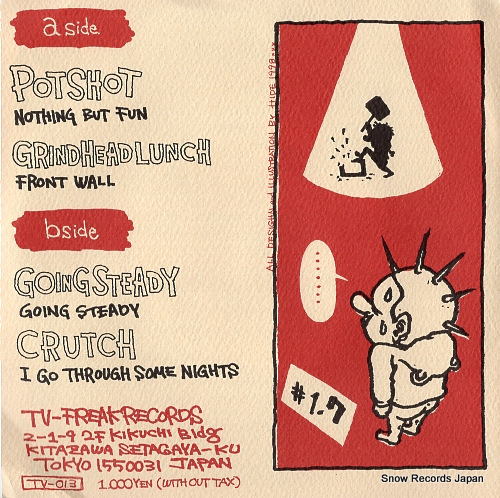 a side
POTSHOT
NOTHING BUT FUN
GRINDHEAD LUNCH
FRONT WALL
b side
GOING STEADY
GOING STEADY
CRUTCH
I GO THROUGH SOME NIGHTS
TV-FREAK RECORDS
2-1-9 2F KIKUCHI Bldg
KITAZAWA SETAGAYA-KU
TOKYO 1550031 JAPAN
TV-013 1.000YEN (WITHOUT TAX)
ALL DESIGN and ILLUSTRATION BY HIDE 1998
.......
Snow Records Japan